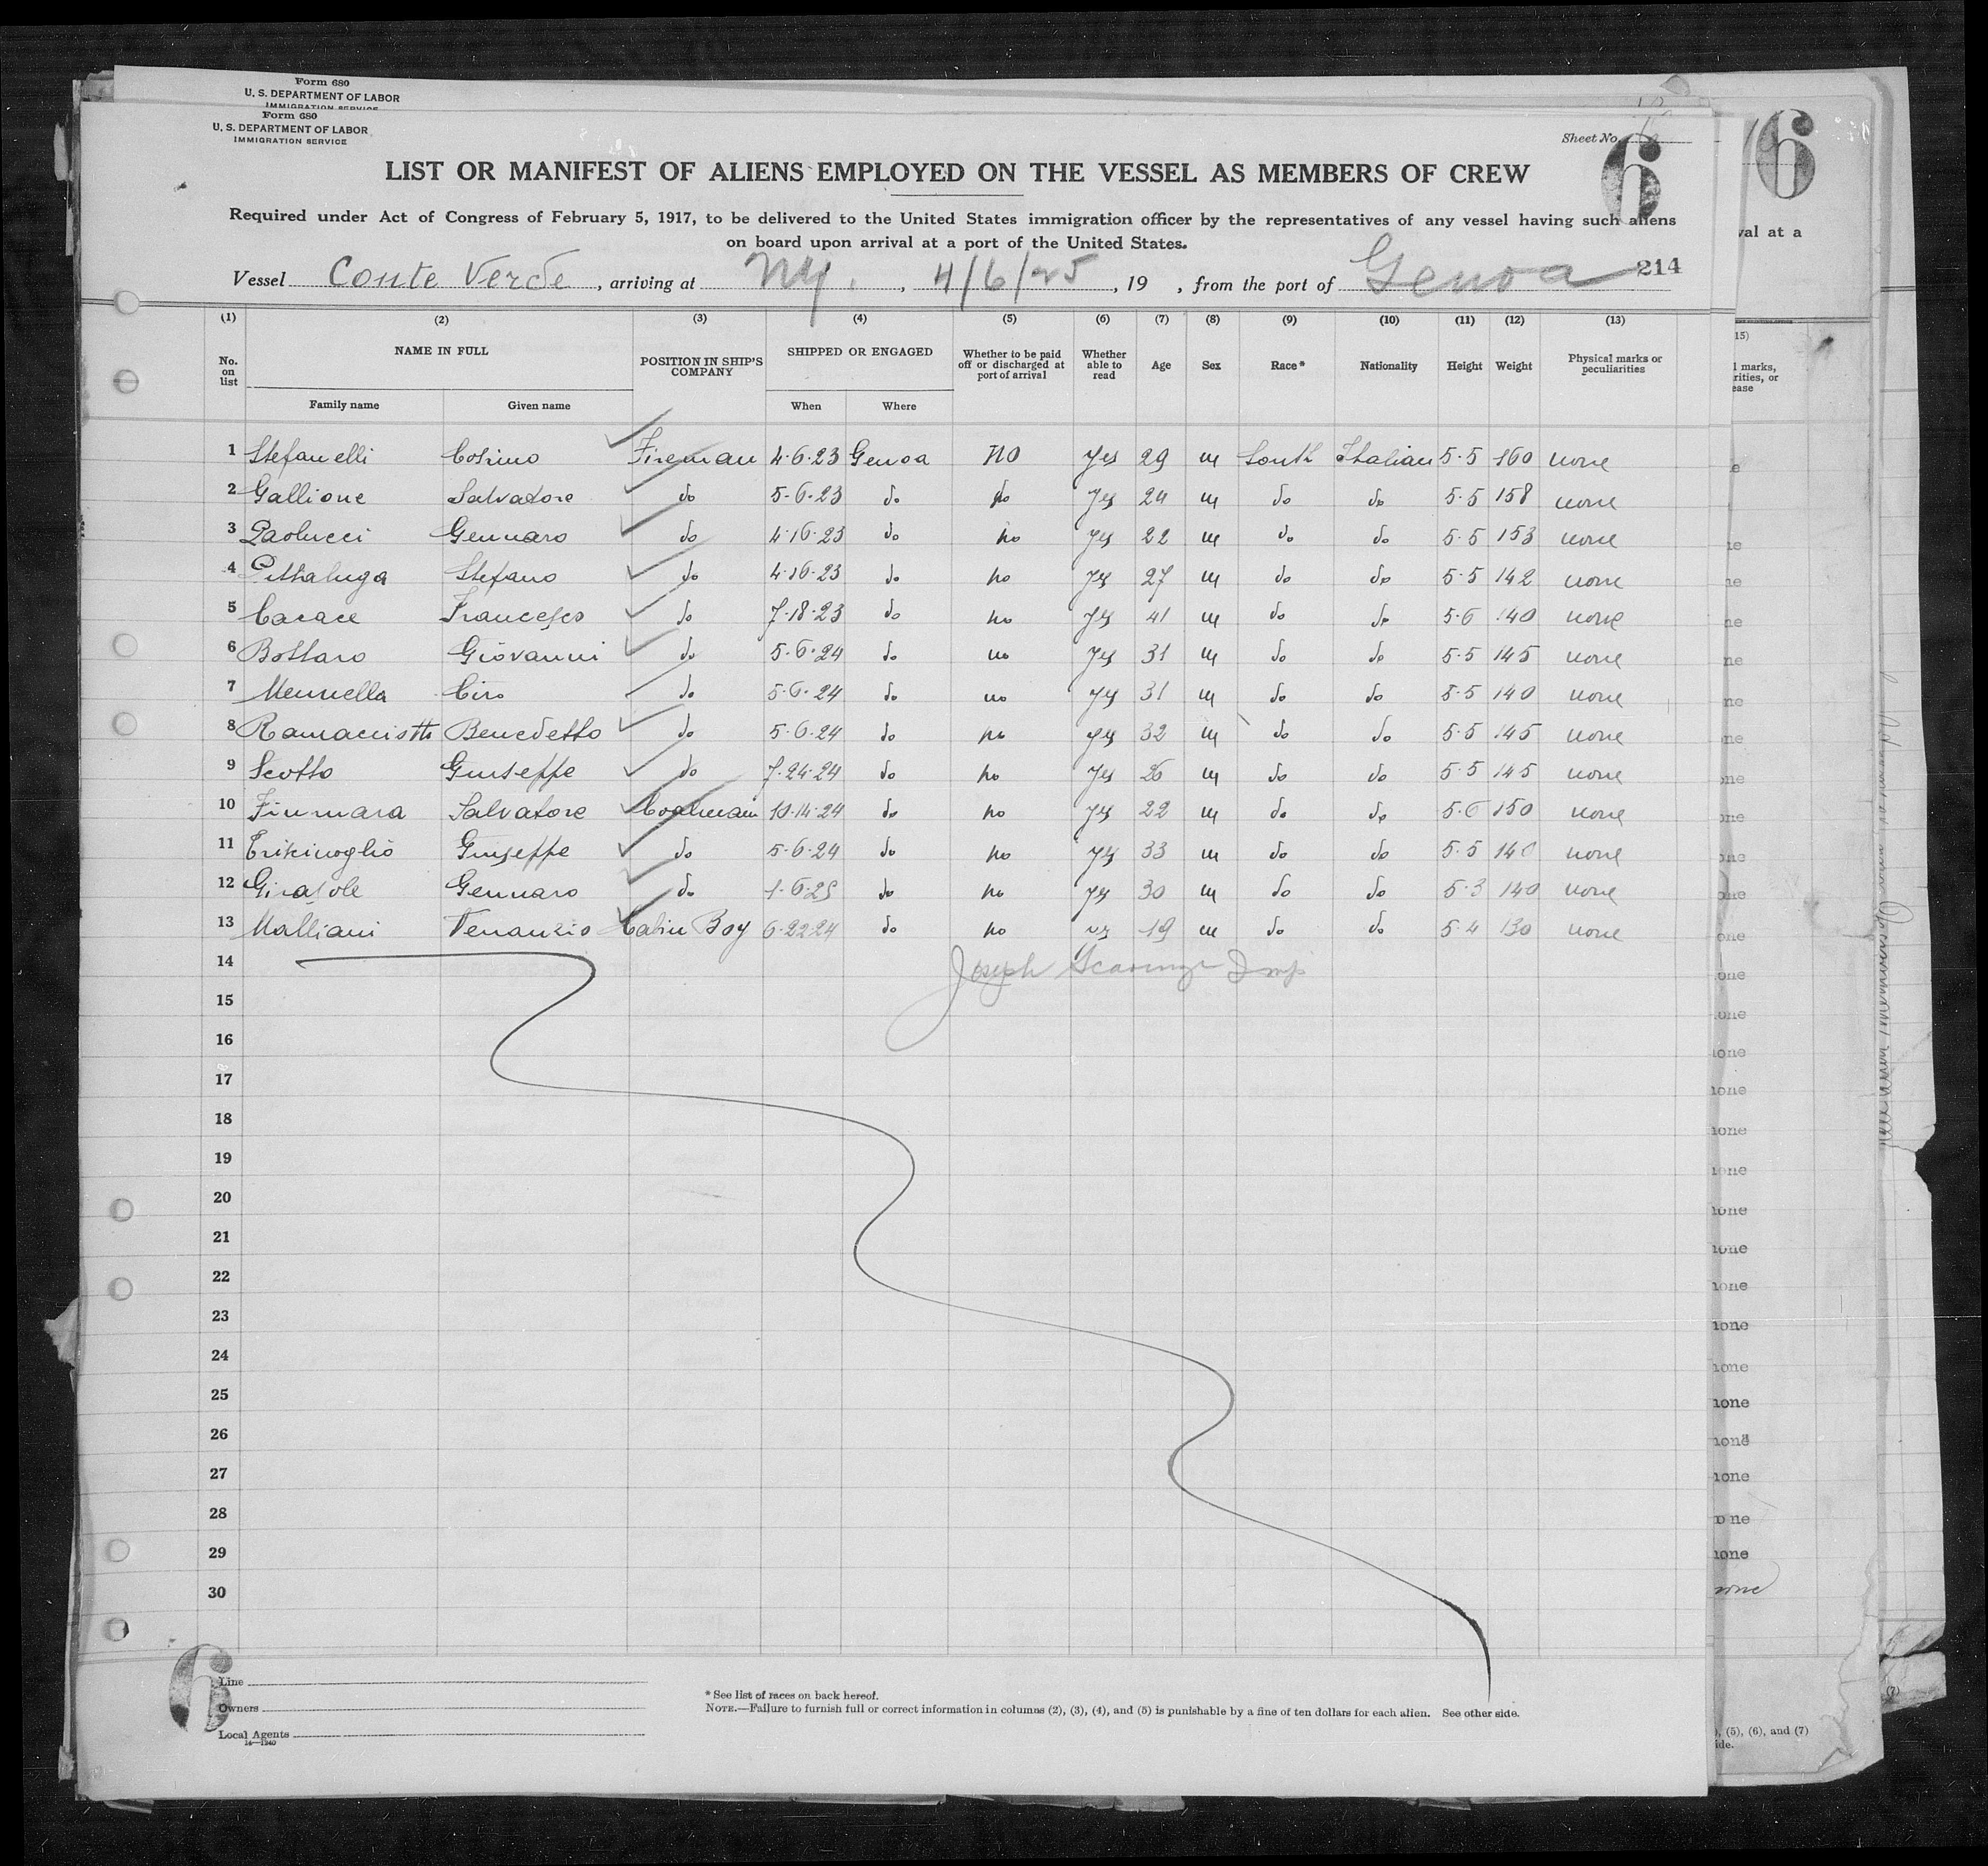 Form 680
U. S. DEPARTMENT OF LABOR
IMMIGRATION SERVICE
Form 680
U. S. DEPARTMENT OF LABOR
IMMIGRATION SERVICE
Sheet No.
6
6
LIST OR MANIFEST OF ALIENS EMPLOYED ON THE VESSEL AS MEMBERS OF CREW
Required under Act of Congress of February 5, 1917, to be delivered to the United States immigration officer by the representatives of any vessel having such aliens
on board upon arrival at a port of the United States.
val at a
214
Vessel Conte Verde, arriving at NY., 4/6/25, 19 , from the port of Genoa
(1) (2) (3) (4) (5) (6) (7) (8) (9) (10) (11) (12) (13)
No. on list NAME IN FULL POSITION IN SHIP'S COMPANY SHIPPED OR ENGAGED Whether to be paid off or discharged at port of arrival Whether able to read Age Sex Race* Nationality Height Weight Physical marks or peculiarities
Family name Given name When Where
1 Stefanelli Cosimo Fireman 4-6-23 Genoa no yes 29 m South Italian 5-5 160 none
2 Gallione Salvatore do 5-6-23 do do yes 24 m do do 5-5 158 none
3 Paolucci Gennaro do 4-16-23 do no yes 22 m do do 5-5 153 none
4 Pittaluga Stefano do 4-16-23 do no yes 27 m do do 5-5 142 none
5 Carace Francesco do 7-18-23 do no yes 41 m do do 5-6 140 none
6 Bottaro Giovanni do 5-6-24 do no yes 31 m do do 5-5 145 none
7 Mennella Ciro do 5-6-24 do no yes 31 m do do 5-5 140 none
8 Ramacciotti Benedetto do 5-6-24 do no yes 32 m do do 5-5 145 none
9 Scotto Giuseppe do 7-24-24 do no yes 26 m do do 5-5 145 none
10 Finmara Salvatore Coalman 10-14-24 do no yes 22 m do do 5-6 150 none
11 Giuseppe do 5-6-24 do no yes 33 m do do 5-5 140 none
12 Girasole Gennaro do 1-6-25 do no yes 30 m do do 5-3 140 none
13 Malliani Venanzio Cabin Boy 6-22-24 do no yes 19 m do do 5-4 130 none
14 Joseph
15
16
17
18
19
20
21
22
23
24
25
26
27
28
29
30
6
Line
Owners
Local Agents
14—1240
* See list of races on back hereof.
NOTE.—Failure to furnish full or correct information in columns (2), (3), (4), and (5) is punishable by a fine of ten dollars for each alien. See other side.
, (5), (6), and (7)
ide.